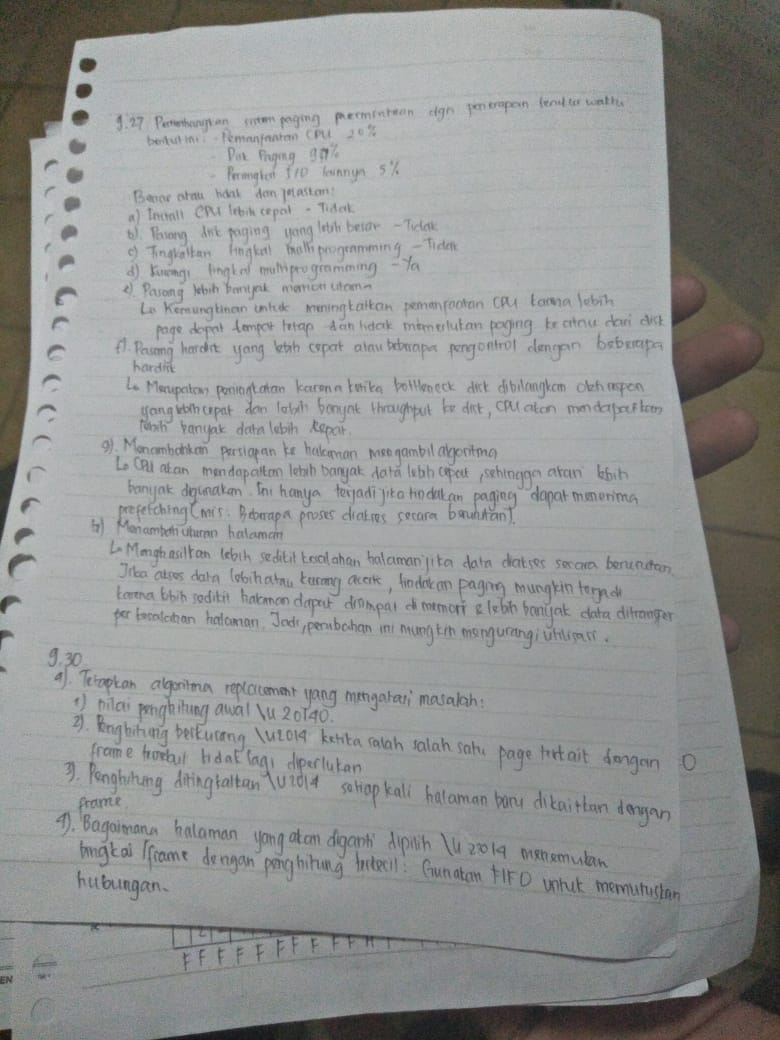 9.27 Pertimbangkan sistem paging permintaan dgn penerapan terukur waktu
berikut ini: - Pemanfaatan CPU 20%
- Disk Paging 97%
- Perangkat I/O lainnya 5%
Benar atau tidak dan jelaskan:
a) Install CPU lebih cepat - Tidak
b). Pasang disk paging yang lebih besar - Tidak
c) Tingkatkan tingkat multiprogramming - Tidak
d) Kurangi tingkat multiprogramming - Ya
e) Pasang lebih banyak memori utama
Lo Kemungkinan untuk meningkatkan pemanfaatan CPU karna lebih
page dapat tempat tetap dan tidak memerlukan paging ke atau dari disk
f). Pasang hardisk yang lebih cepat atau beberapa pengontrol dengan beberapa
hardisk
Lo Merupakan peningkatan karena ketika bottleneck disk dihilangkan oleh respon
yang lebih cepat dan lebih banyak throughput ke disk, CPU akan mendapatkan
lebih banyak data lebih cepat.
g). Menambahkan persiapan ke halaman mengambil algoritma
Lo CPU akan mendapatkan lebih banyak data lebih cepat, sehingga akan lebih
banyak digunakan. Ini hanya terjadi jika tindakan paging dapat menerima
prefetching (mis: Beberapa proses diakses secara berurutan).
h) Menambah ukuran halaman
Lo Menghasilkan lebih sedikit kesalahan halaman jika data diakses secara berurutan.
Jika akses data lebih atau kurang acak, tindakan paging mungkin terjadi
karena lebih sedikit halaman dapat disimpai di memori & lebih banyak data ditranfer
per kesalahan halaman. Jadi, perubahan ini mungkin mengurangi utilisasi.
9.30
a). Tetapkan algoritma replacement yang mengatasi masalah:
1) nilai penghitung awal \u20140.
2). Penghitung berkurang \u2014 ketika salah salah satu page terkait dengan
frame tersebut tidak lagi diperlukan
3). Penghitung ditingkatkan \u2014 setiap kali halaman baru dikaitkan dengan
frame.
4). Bagaimana halaman yang akan diganti dipilih \u2014 menemukan
bingkai/frame dengan penghitung terkecil: Gunakan FIFO untuk memutuskan
hubungan.
F F F F F F F F F